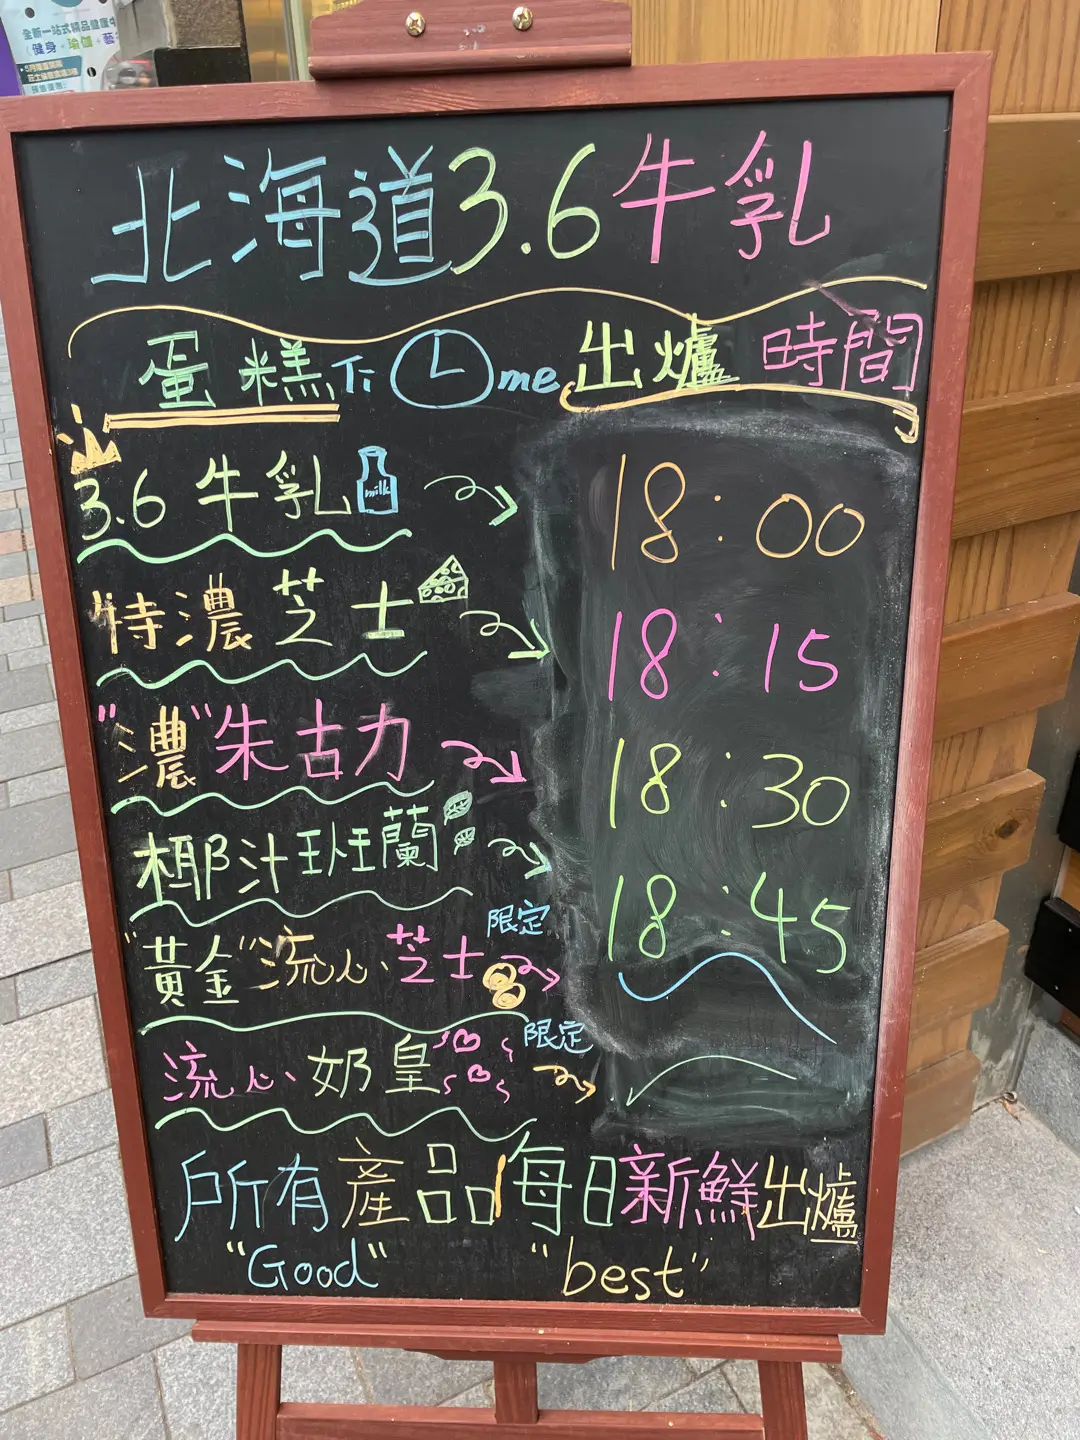 全新一站式精品健康中
健身·瑜伽·藝
北海道3.6牛乳
蛋糕下 me 出爐時間
3.6牛乳 milk 18:00
"特濃芝士 18:15
"濃"朱古力 18:30
椰汁班蘭 18:45
"黃金"流心芝士 限定
流心奶皇 限定
所有產品每日新鮮出爐
"Good" "best"